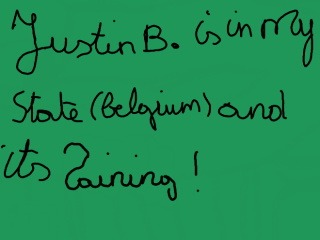 Justin B. is in my
State (Belgium) and
its Raining!